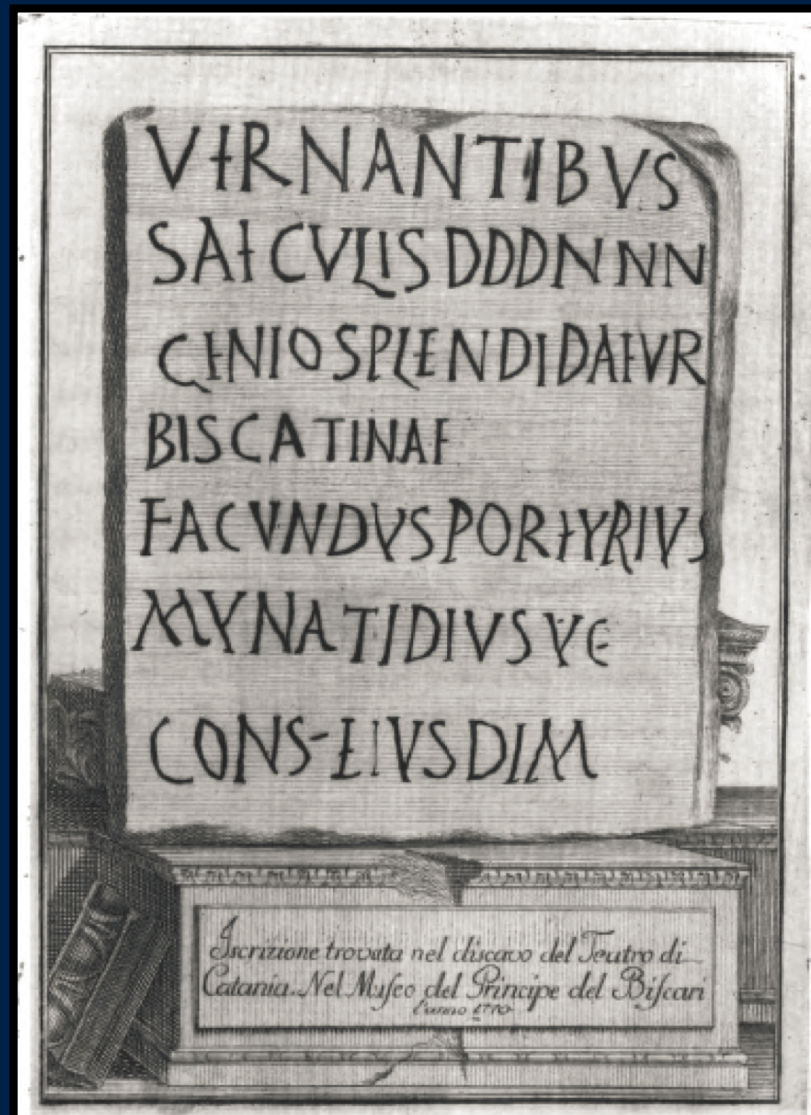 VERNANTIBVS
SAECVLIS DDDNNN
GENIO SPLENDIDAE VR
BIS CATINAE
FACVNDVS PORFYRIVS
MYNATIDIVS VC
CONS EIVSDEM
Iscrizione trovata nel discavo del Teatro di
Catania. Nel Museo del Principe del Biscari
l'anno 1770